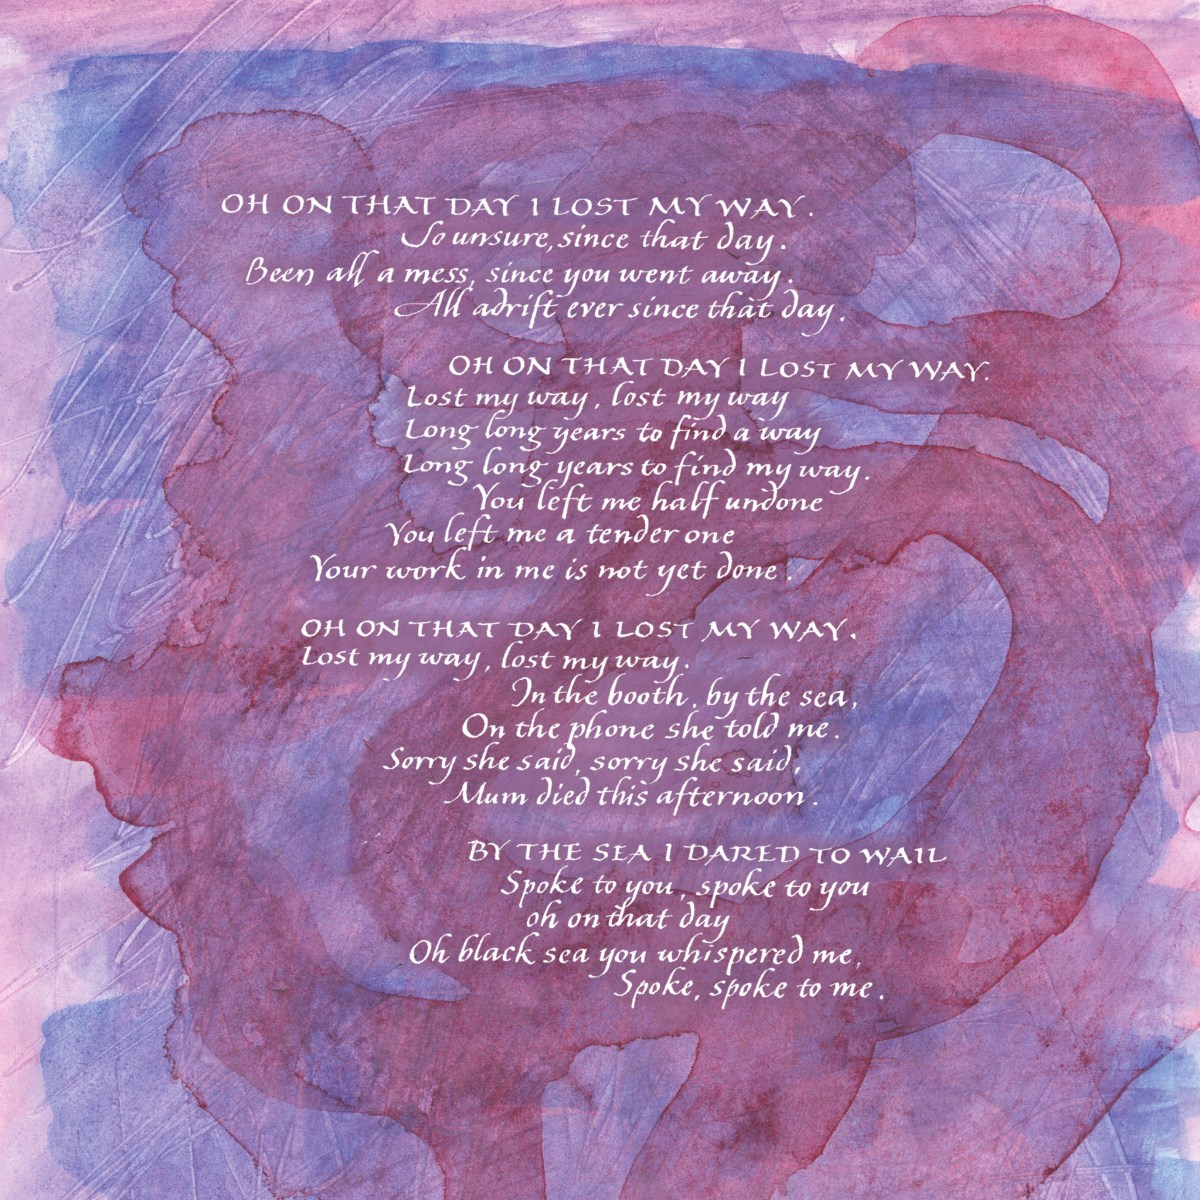 OH ON THAT DAY I LOST MY WAY.
So unsure, since that day.
Been all a mess, since you went away.
All adrift ever since that day.
OH ON THAT DAY I LOST MY WAY.
Lost my way, lost my way
Long long years to find a way
Long long years to find my way.
You left me half undone
You left me a tender one
Your work in me is not yet done.
OH ON THAT DAY I LOST MY WAY.
Lost my way, lost my way.
In the booth, by the sea,
On the phone she told me.
Sorry she said, sorry she said,
Mum died this afternoon.
BY THE SEA I DARED TO WAIL
Spoke to you, spoke to you
oh on that day
Oh black sea you whispered me,
Spoke, spoke to me.